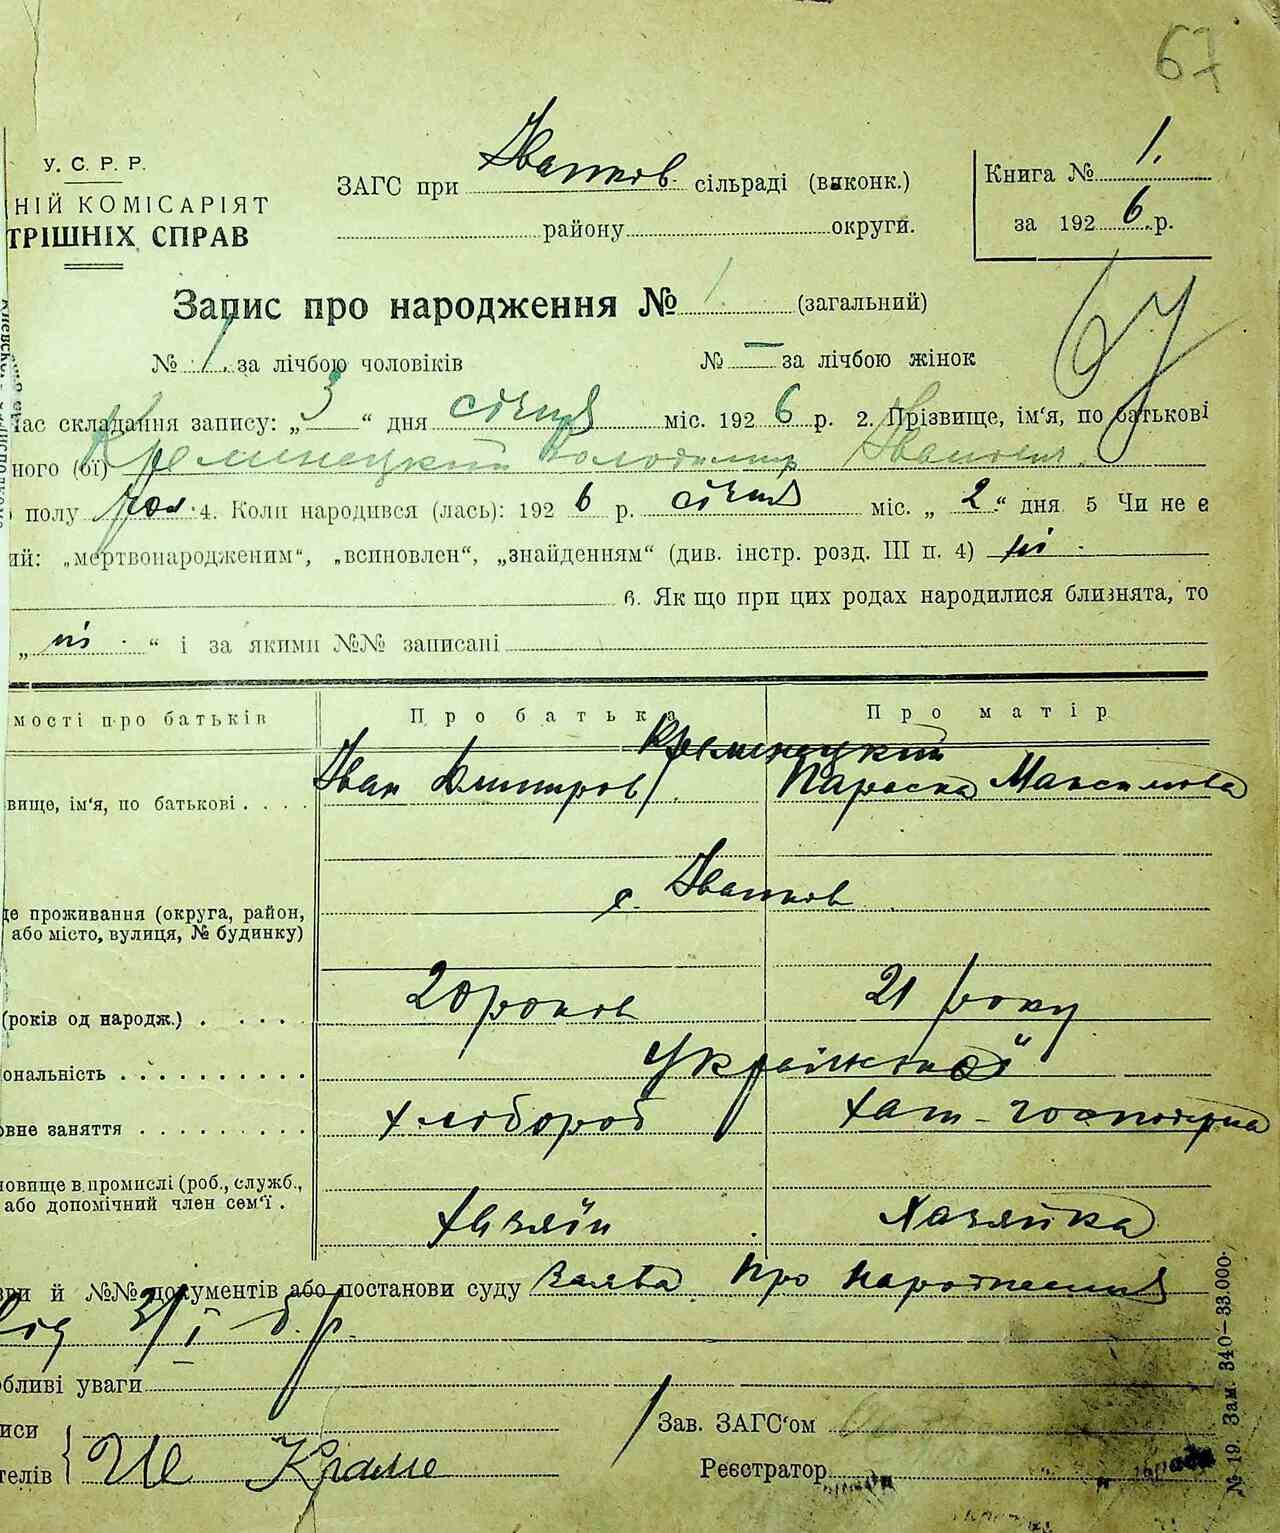 67
У. С. Р. Р.
НІЙ КОМІСАРІЯТ
ТРІШНІХ СПРАВ
ЗАГС при Іванков сільраді (виконк.)
району округи.
Книга № 1.
за 1926 р.
Запис про народження № 1. (загальний)
№ 1. за лічбою чоловіків № — за лічбою жінок
67
Час складання запису: „3“ дня січня міс. 1926 р. 2. Прізвище, ім'я, по батькові
ного (ої) Кременецкий Володимир Іванович.
полу чол. 4. Коли народився (лась): 1926 р. січня міс. „2“ дня 5 Чи не є
ий: „мертвонародженим“, „всиновлен“, „знайденням“ (див. інстр. розд. III п. 4) ні.
6. Як що при цих родах народилися близнята, то
„ ні. “ і за якими №№ записані
мості про батьків Про батька Про матір
Кременецкий
вище, ім'я, по батькові Іван Дмитров Параска Максимова
де проживання (округа, район, с. Іванков
або місто, вулиця, № будинку)
(років од народж.) 20 роков 21 року
ональність Української
овне заняття хлібороб хат-господарка
новище в промислі (роб., служб.,
або допомічний член сем'ї. Хазяїн Хазяйка
зви й №№ документів або постанови суду Заява про народження
від 3/I б.р.
обливі уваги
иси
телів
Зав. ЗАГС'ом
Реєстратор
№ 19. Зам. 340—33.000.